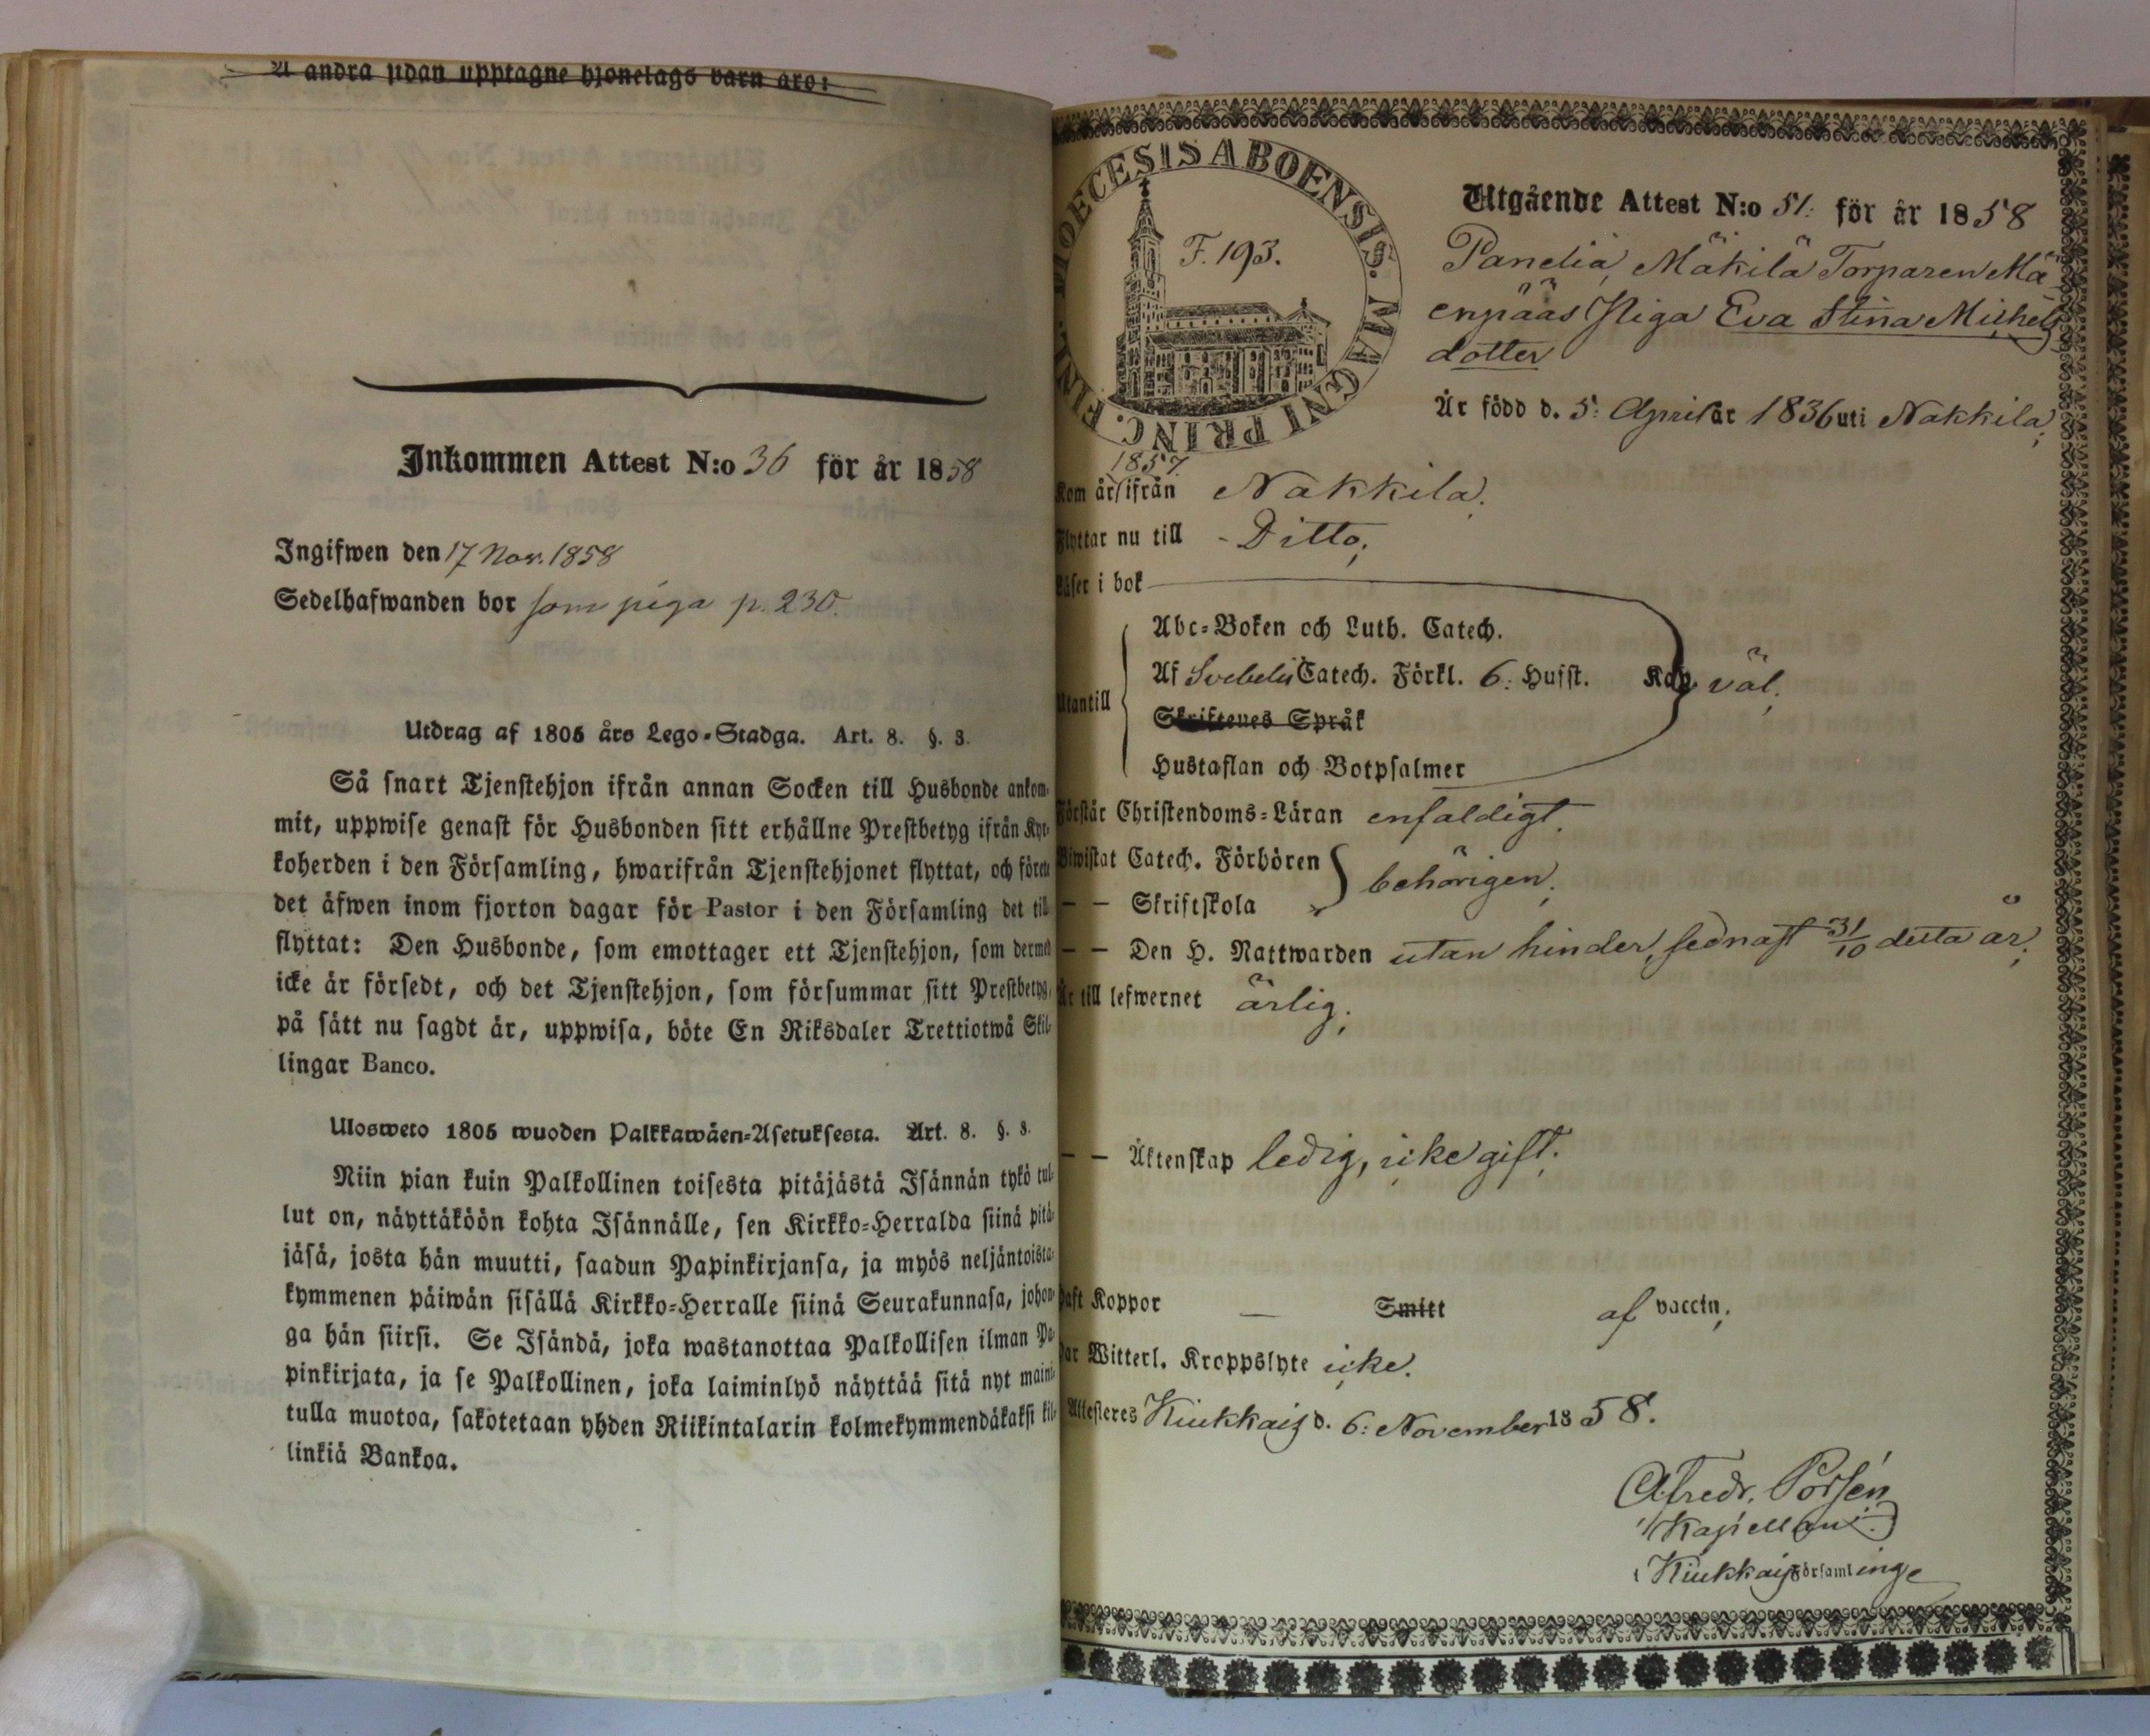 A andra sidan upptagne hjonelags barn äro:
Inkommen Attest N:o 36 för år 1858
Ingifwen den 17 Nov. 1858
Sedelhafwanden bor som piga p. 230.
Utdrag af 1805 års Lego-Stadga. Art. 8. §. 3.
Så snart Tjenstehjon ifrån annan Socken till Husbonde ankom-
mit, uppwise genast för Husbonden sitt erhållne Prestbetyg ifrån Kyr-
koherden i den Församling, hwarifrån Tjenstehjonet flyttat, och förete
det äfwen inom fjorton dagar för Pastor i den Församling det till
flyttat: Den Husbonde, som emottager ett Tjenstehjon, som dermed
icke är försedt, och det Tjenstehjon, som försummar sitt Prestbetyg,
på sätt nu sagdt är, uppwisa, böte En Riksdaler Trettiotwå Skil-
lingar Banco.
Ulosweto 1805 wuoden Palkkawäen-Asetuksesta. Art. 8. §. 3.
Niin pian kuin Palkollinen toisesta pitäjästä Isännän tykö tul-
lut on, näyttäköön kohta Isännälle, sen Kirkko-Herralda siinä pitä-
jäsä, josta hän muutti, saadun Papinkirjansa, ja myös neljäntoista-
kymmenen päiwän sisällä Kirkko-Herralle siinä Seurakunnasa, johon-
ga hän siirsi. Se Isändä, joka wastanottaa Palkollisen ilman Pa-
pinkirjata, ja se Palkollinen, joka laiminlyö näyttää sitä nyt maini-
tulla muotoa, sakotetaan yhden Riikintalarin kolmekymmendäkaksi kil-
linkiä Bankoa.
DIOECESIS ABOENSIS. MAGNI PRINC. FINL.
F. 193.
Utgående Attest N:o 51. för år 1858
Panelia, Mäkilä Torparen Mä-
enpääs Piga Eva Stina Michels
dotter
Är född d. 5: April år 1836 uti Nakkila;
1857.
Kom år ifrån Nakkila;
Flyttar nu till - Ditto;
Läser i bok
Abc-Boken och Luth. Catech.
Utantill Af Svebelii Catech. Förkl. 6: Hufst. Kap. väl;
Skriftenes Språk
Hustaflan och Botpsalmer
Förstår Christendoms-Läran enfaldigt.
Biwistat Catech. Förhören
behörigen;
— — Skriftskola
— — Den H. Nattwarden utan hinder, sednast 31/10 detta år;
Är till lefwernet ärlig;
— — Äktenskap ledig, icke gift.
Haft Koppor — Smitt af vaccin;
Har Witterl. Kroppslyte icke.
Attesteres Kiukkais d. 6: November 1858.
Afredr. Porsén
Kapellan.
Kiukkais Församlinge